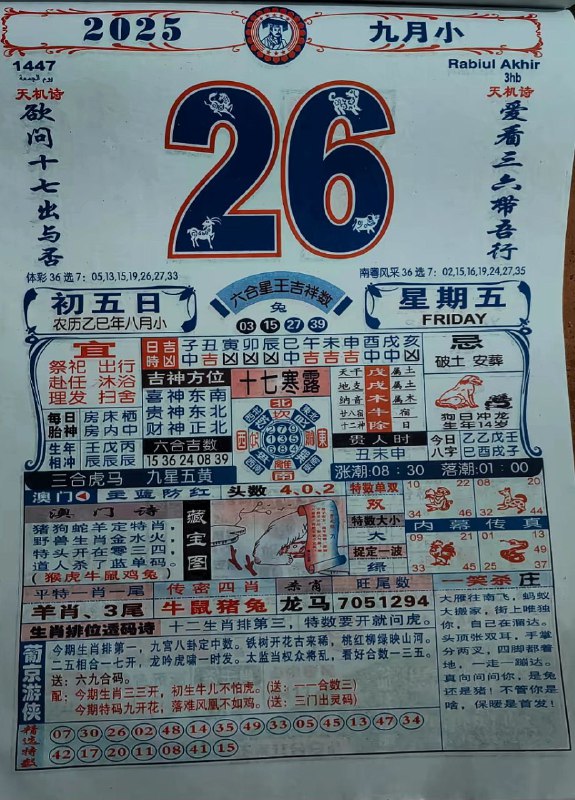 2025
九月小
1447
يوم الجمعة
Rabiul Akhir
3hb
天机诗
欲问十七出与否
26
天机诗
爱看三六带吾行
体彩36选7：05,13,15,19,26,27,33
南粤风采36选7：02,15,16,19,24,27,35
初五日
农历乙巳年八月小
六合星王吉祥数
兔
03 15 27 39
星期五
FRIDAY
宜
祭祀 出行
赴任 沐浴
理发 扫舍
日吉時凶
子丑寅卯辰巳午未申酉戌亥
吉神方位
喜神东南
贵神东北
财神正北
十七寒露
北
坎
離
南
天干 戊 属土
地支 戌 属土
纳音 木
廿八宿 牛 宿
十二神 除 日
忌
破土 安葬
狗日冲龙
生年14岁
每日胎神
房床栖
房内中
生年相冲
壬丙戊
辰辰辰
六合吉数
15 36 24 08 39
贵人时
丑未申
今日八字
乙乙戊壬
巳酉戌子
三合虎马 九星五黄
涨潮：08：30 落潮：01：00
澳门 主蓝防红
头数 4,0,2
澳门诗
猪狗蛇羊定特肖，
野兽生肖金水火，
特头开在零三四，
道人杀了蓝单码。
（猴虎牛鼠鸡兔）
藏宝图
特数单双
双
特数大小
大
捉定一波
绿
10 04 08 02
内幕传真
33 01
09 45 25 49
21 37
平特一肖一尾
羊肖、3尾
传密四肖
牛鼠猪兔
杀肖
龙马
旺尾数
7051294
笑茶庄
大雁往南飞，蚂蚁
大搬家，街上唯独
你，自己在溜达。
头顶张双耳，手掌
分两叉，四脚都着
地，一走一蹦达。
真向问问你，是兔
还是猪！不管你是
啥，保暖是首发！
生肖排位透码诗
十二生肖排第三，特数要开就问虎。
今期生肖排第一，九宫八卦定中数。铁树开花古来稀，桃红柳绿映山河。
二五相合一七开，龙吟虎啸一时发。太监当权众将乱，看好合数一三五。
送：六九合码。
配：今期生肖三三开，初生牛儿不怕虎。（送：一一合数三）
今期特码九开花，落难凤凰不如鸡。（送：三门出灵码）
葡京游侠
精选特数
07 30 26 02 48 14 35 49 33 05 45 13 47 34
42 17 20 11 08 41 15